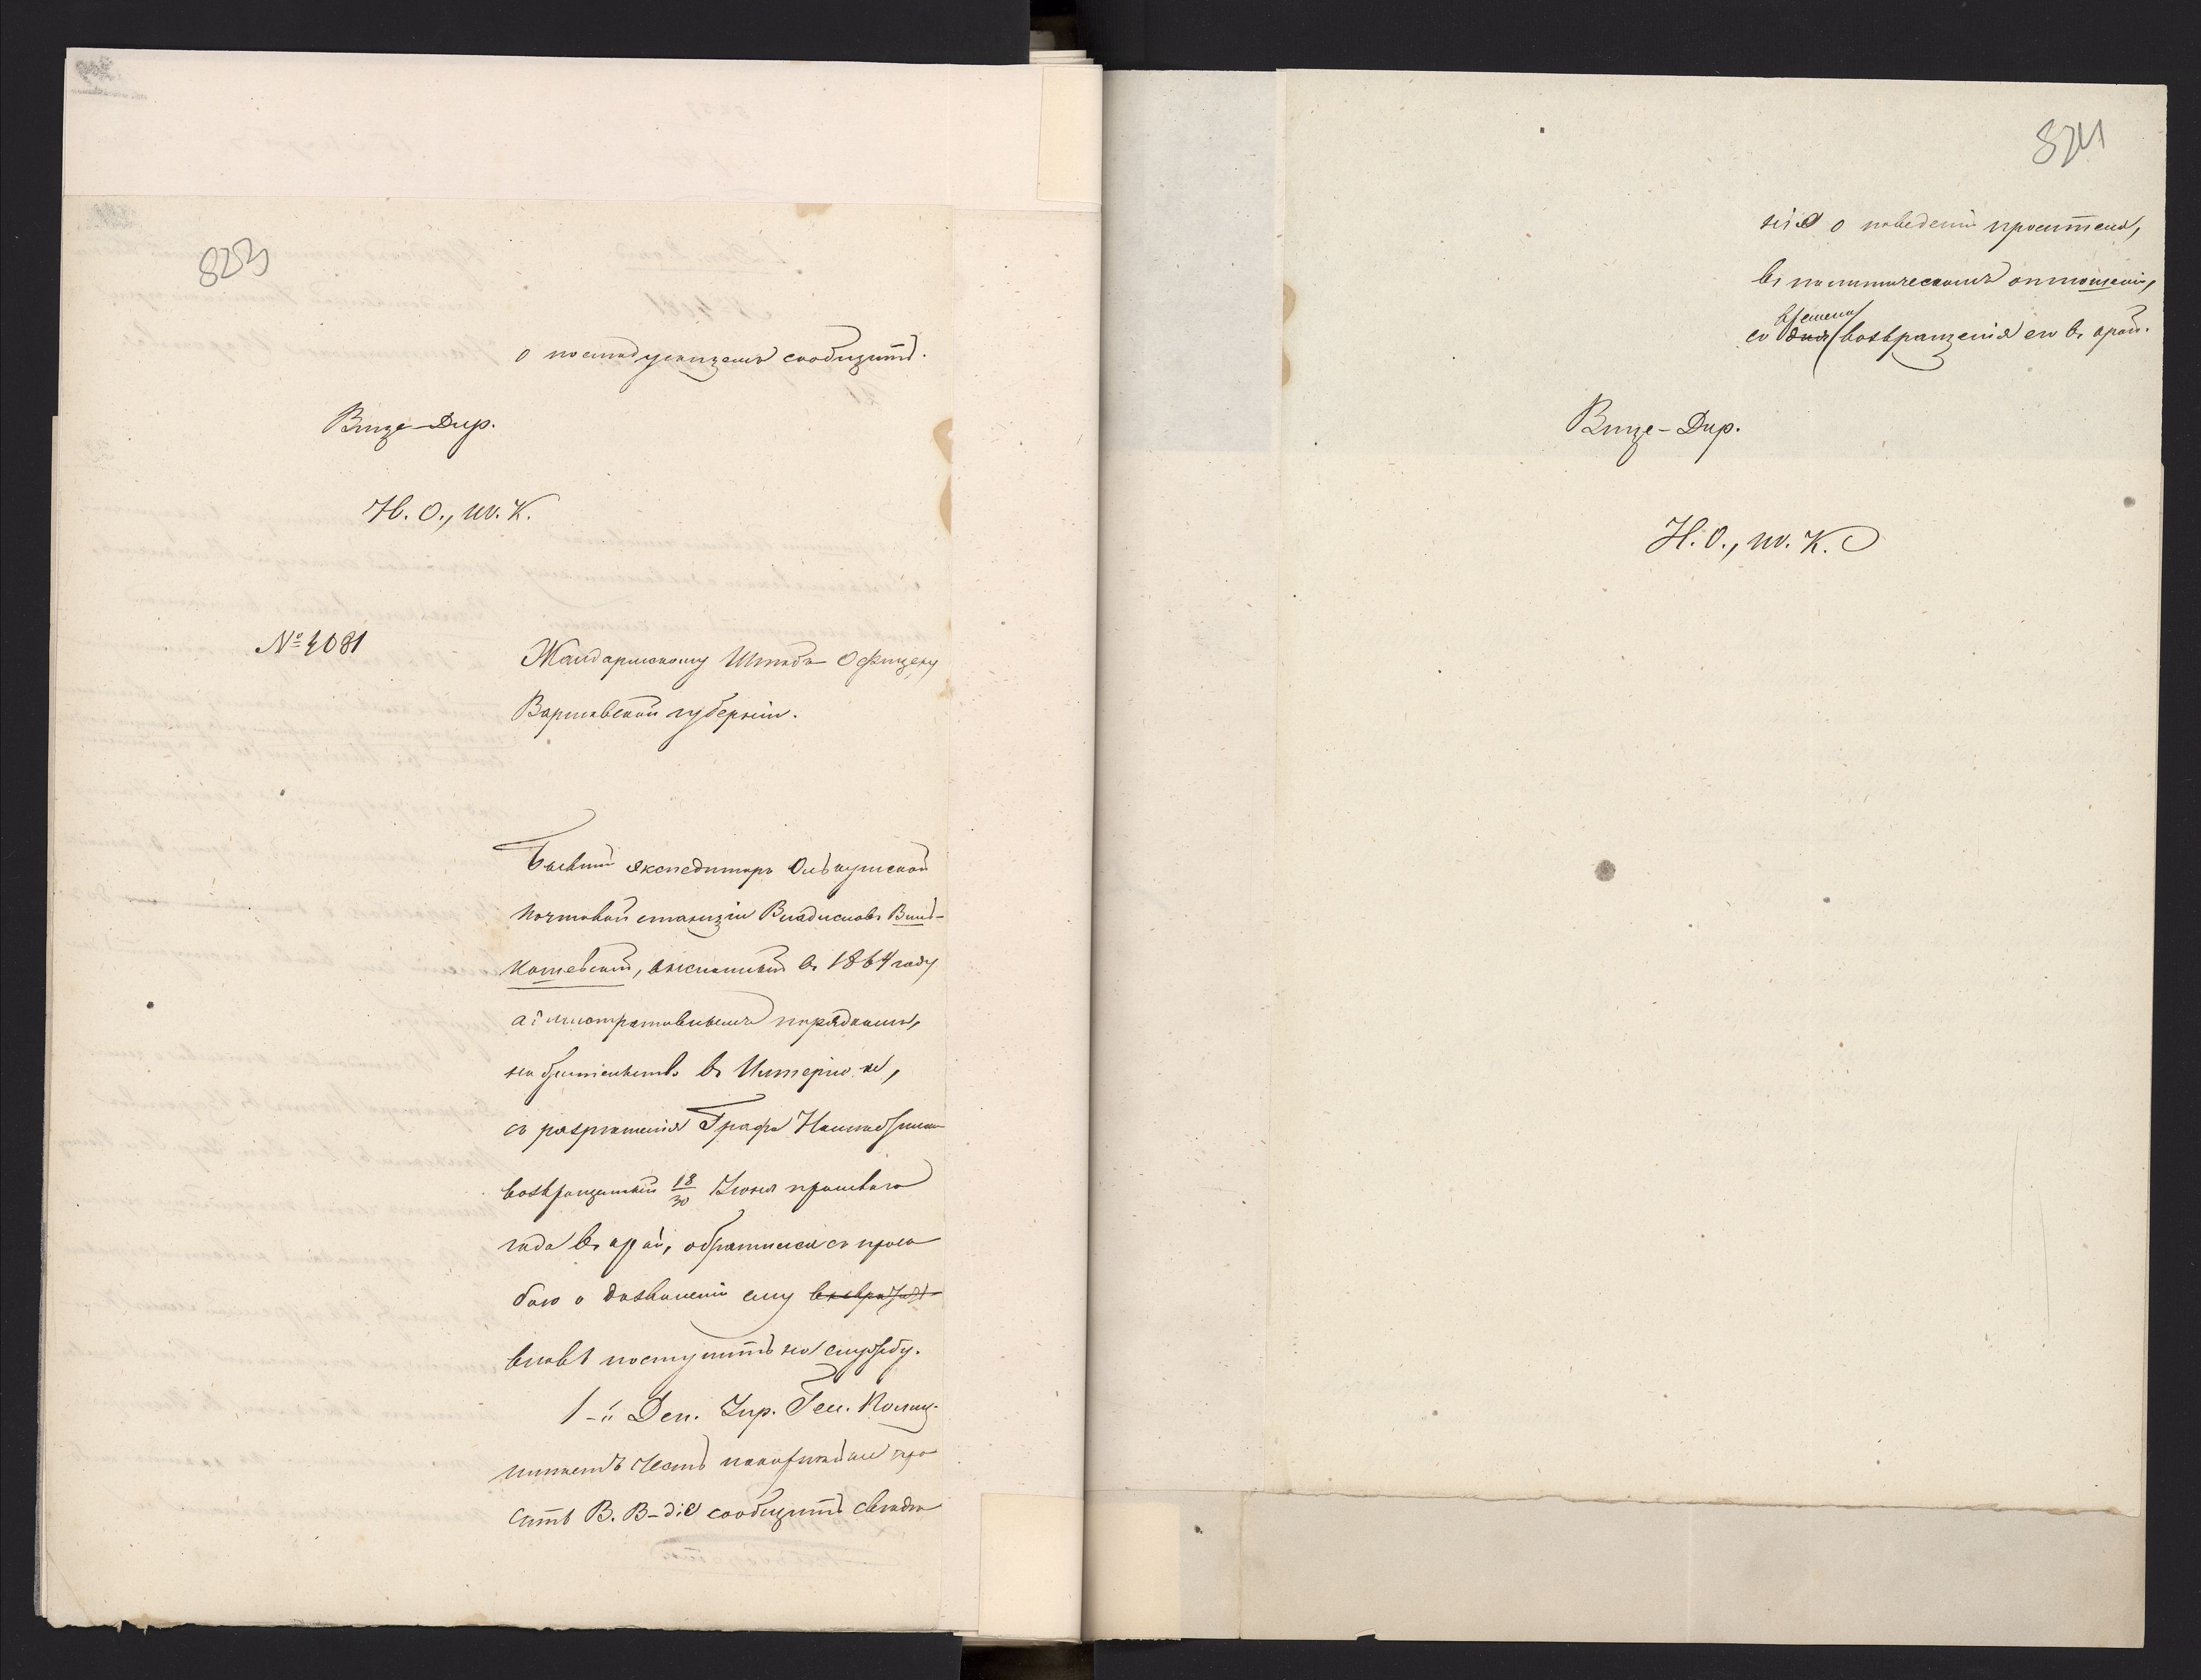 823
о послѣдующемъ сообщить.
Вице-Дир.
Н. О., ш. К.
№ 4081
Жандармскому Штабъ-Офицеру
Варшавской губерніи.
Бывшій экспедиторъ Олькушской
почтовой станціи Владиславъ
высланный въ 1864 году
административнымъ порядкомъ,
на жительство въ Имперію и,
съ разрѣшенія Графа Намѣстника
возвращенный 18/30 Іюня прошлаго
года въ край, обратился съ прось
бою о дозволеніи ему возвратить
вновь поступить на службу.
1-й Деп. Упр. Ген. Полиц.
имѣетъ честь покорнѣйше про
сить В. В-діе сообщить свѣдѣ
824
нія о поведеніи просителя,
въ политическомъ отношеніи,
времени
со дня возвращенія его въ край.
Вице-Дир.
Н. О., ш. К.